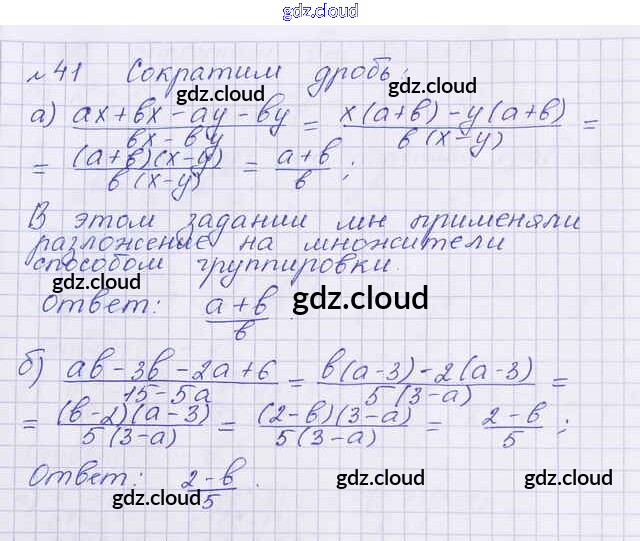 gdz.cloud
№41 Сократим дробь:
gdz.cloud gdz.cloud
а) ax+bx-ay-by / bx-by = x(a+b)-y(a+b) / b(x-y) =
gdz.cloud gdz.cloud
= (a+b)(x-y) / b(x-y) = a+b / b ;
В этом задании мн применяли
разложение на множители
способом группировки.
gdz.cloud gdz.cloud
Ответ: a+b / b .
gdz.cloud
б) ab-3b-2a+6 / 15-5a = b(a-3)-2(a-3) / 5(3-a) =
= (b-2)(a-3) / 5(3-a) = (2-b)(3-a) / 5(3-a) = 2-b / 5 ;
Ответ: 2-b / 5 .
gdz.cloud gdz.cloud gdz.cloud